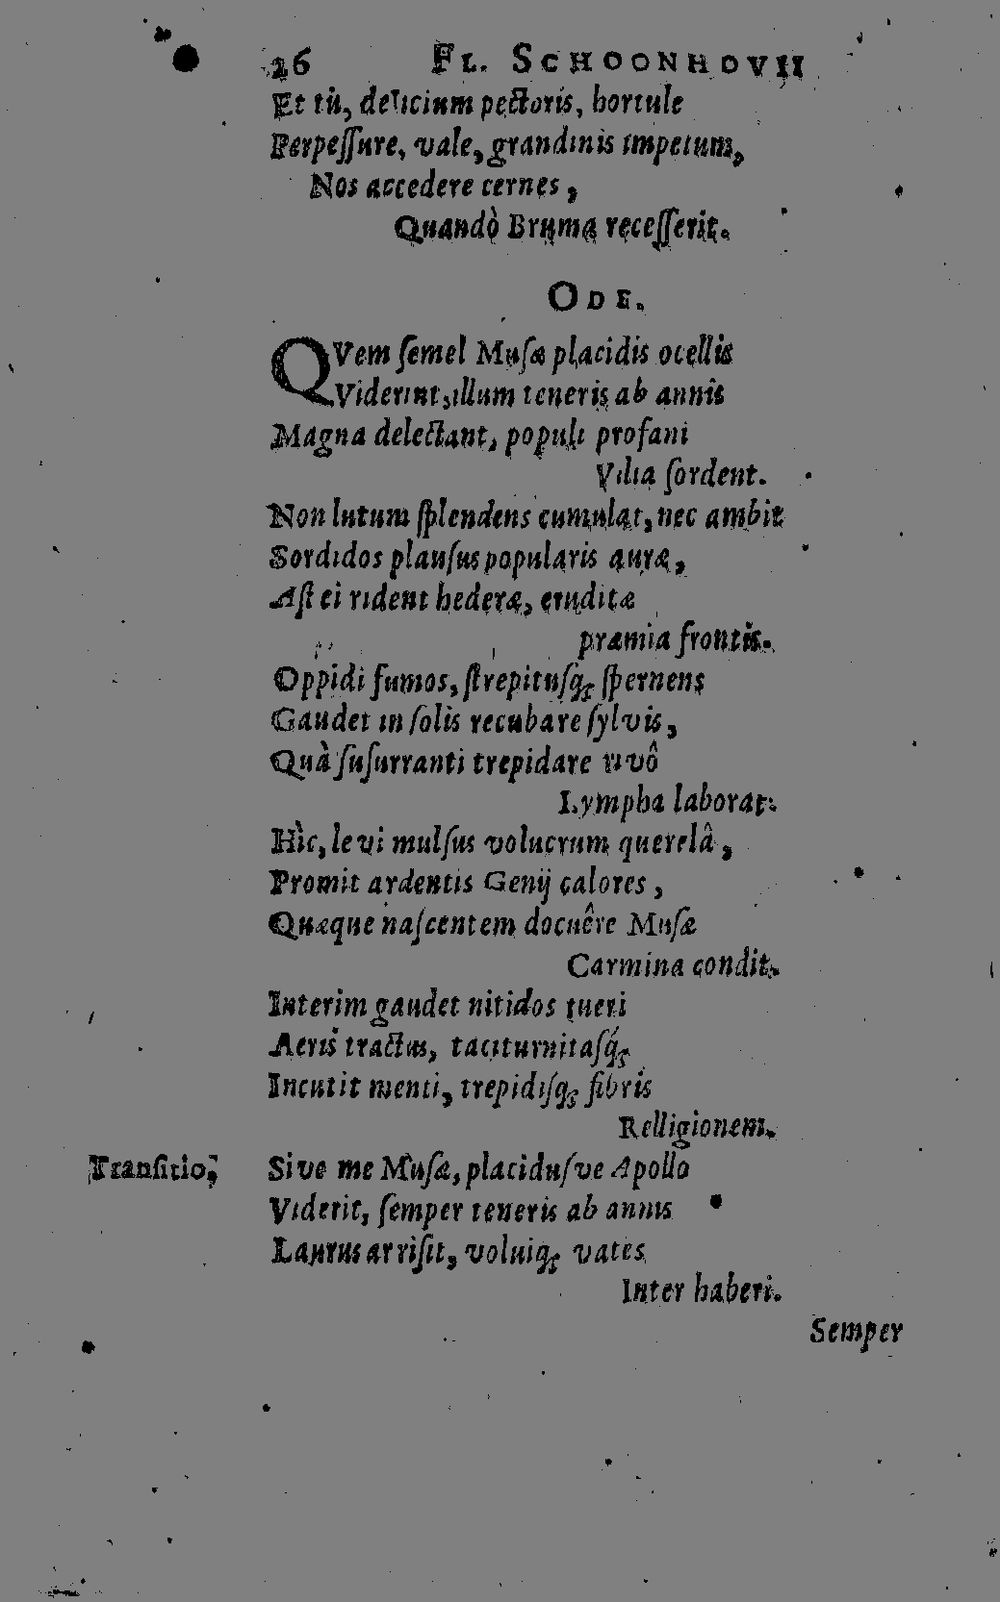 26 FL. SCHOONHOVII
Et tù, delicium pectoris, hortule
Perpeſſure, vale, grandinis impetum,
Nos accedere cernes,
Quandò Bruma receſſerit.
ODE.
QVem ſemel Muſæ placidis ocellis
Viderint, illum teneris ab annis
Magna delectant, populi profani
Vilia ſordent.
Non lutum ſplendens cumulat, nec ambit
Sordidos plauſus popularis auræ,
Aſt ei rident hederæ, eruditæ
præmia frontis.
Oppidi fumos, ſtrepituſq; ſpernens
Gaudet in ſolis recubare ſylvis,
Quà ſuſurranti trepidare rivô
Lympha laborat.
Hìc, levi mulſus volucrum querelâ,
Promit ardentis Genij calores,
Quæque naſcentem docuêre Muſæ
Carmina condit.
Interim gaudet nitidos tueri
Aeris tractus, taciturnitaſq́;
Incutit menti, trepidiſq; fibris
Relligionem.
Tranſitio, Sive me Muſæ, placiduſve Apollo
Viderit, ſemper teneris ab annis
Laurus arriſit, voluiq; vates
Inter haberi.
Semper